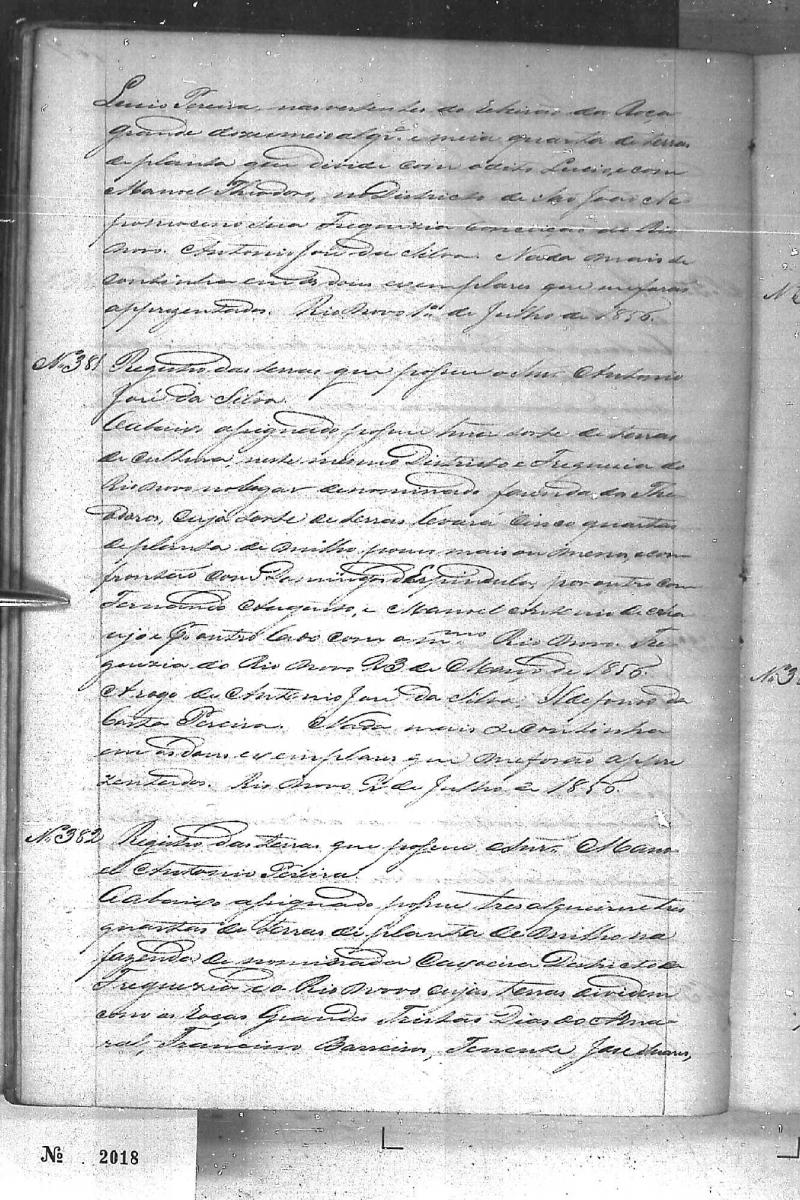 Lucio Pereira, nas vertentes do Ribeirão da Roça
Grande doze e meio alqs. e meia quarta de terras
de planta que divide com o dito Lucio, e com
Manoel Theodoro, no Districto de São João Ne
pomoceno sua Freguezia Conceição do Rio
Novo. Antonio José da Silva. Nada mais se
continha em os dous exemplares que me forão
apprezentados. Rio Novo 1º de Julho de 1856.
Nº 381 Registro das terras que possue o Snr. Antonio
José da Silva.
O abaixo assignado possue huma sorte de terras
de cultura, neste mesmo Districto e Freguezia do
Rio Novo no lugar denominado fazenda da The
odoros, cuja sorte de terras levará cinco quartas
de planta de milho pouco mais ou menos, e con
frontão com Domingos d'Espindula, por outro com
Fernando Augusto, e Manoel Antonio de Ara
ujo e por outro lado com o mmo Rio Novo. Fre
guezia do Rio Novo 23 de Março de 1856.
A rogo de Antonio José da Silva. Ildefonso da
Costa Pereira. Nada mais se continha
em os dous exemplares que me forão appre
zentados. Rio Novo 2 de Julho de 1856.
Nº 382 Registro das terras que possue o Snr. Mano
el Antonio Pereira.
O abaixo assignado possue tres alqueires e tres
quartas de terras de planta de milho na
fazenda denominada Caxoeira Districto da
Freguezia do Rio Novo cujas terras dividem
com as Roças Grandes Tristão Dias do Ama
ral, Francisco Barreiros, Tenente José Soares,
Nº 2018